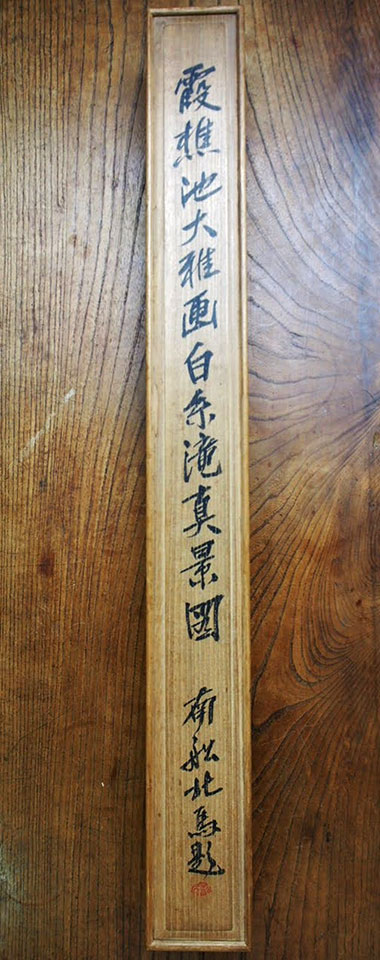 霞樵池大雅画白糸滝真景図
南船北馬題